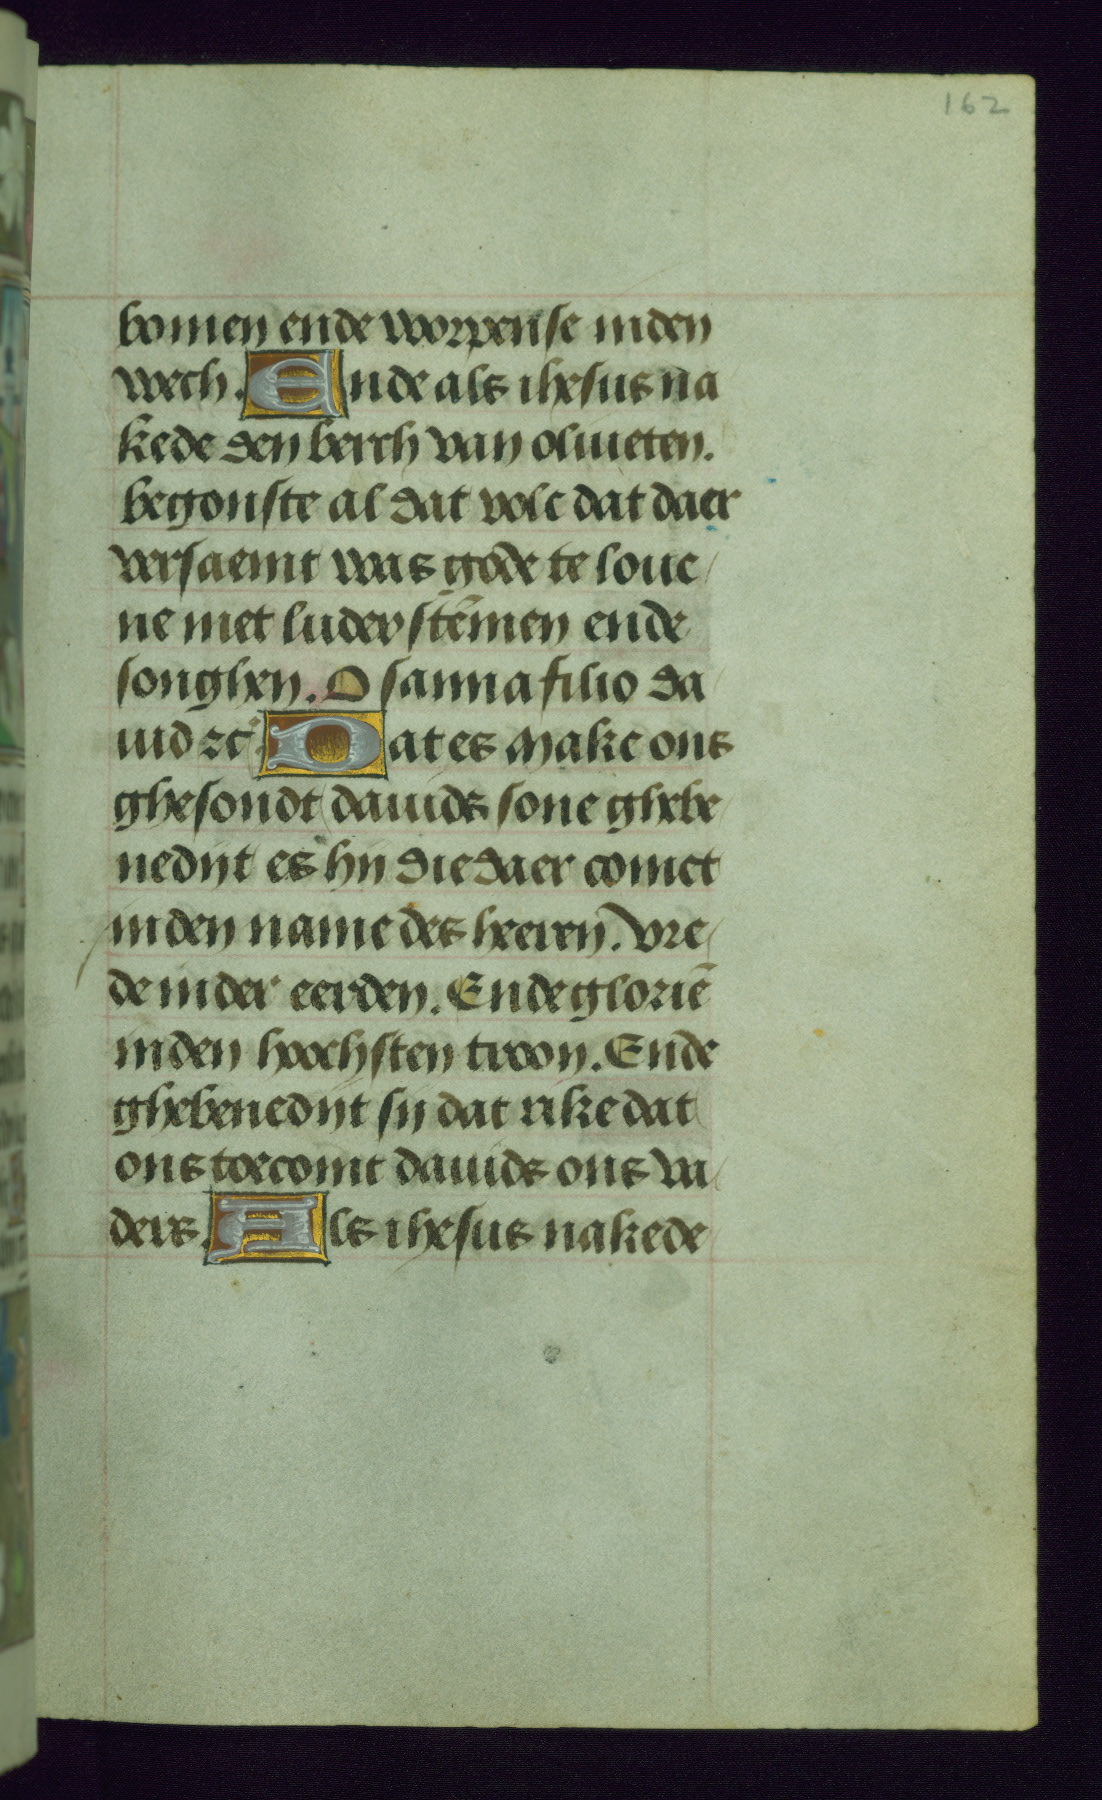 162
bomen ende worpense inden
wech. Ende als ihesus na
kede den berch van oliueten.
begonste al dat volc dat daer
versaemt was gode te loue
ne met luder stēmen ende
songhen. O sanna filio da
uid ⁊c̃. Dat es make ons
ghesondt dauids sone ghebe
nedijt es hij die daer comet
inden name des heeren. vre
de inder eerden. Ende gloriē
inden hoochsten troon. Ende
ghebenedijt sij dat rike dat
ons toecomt dauids ons va
ders. Als ihesus nakede